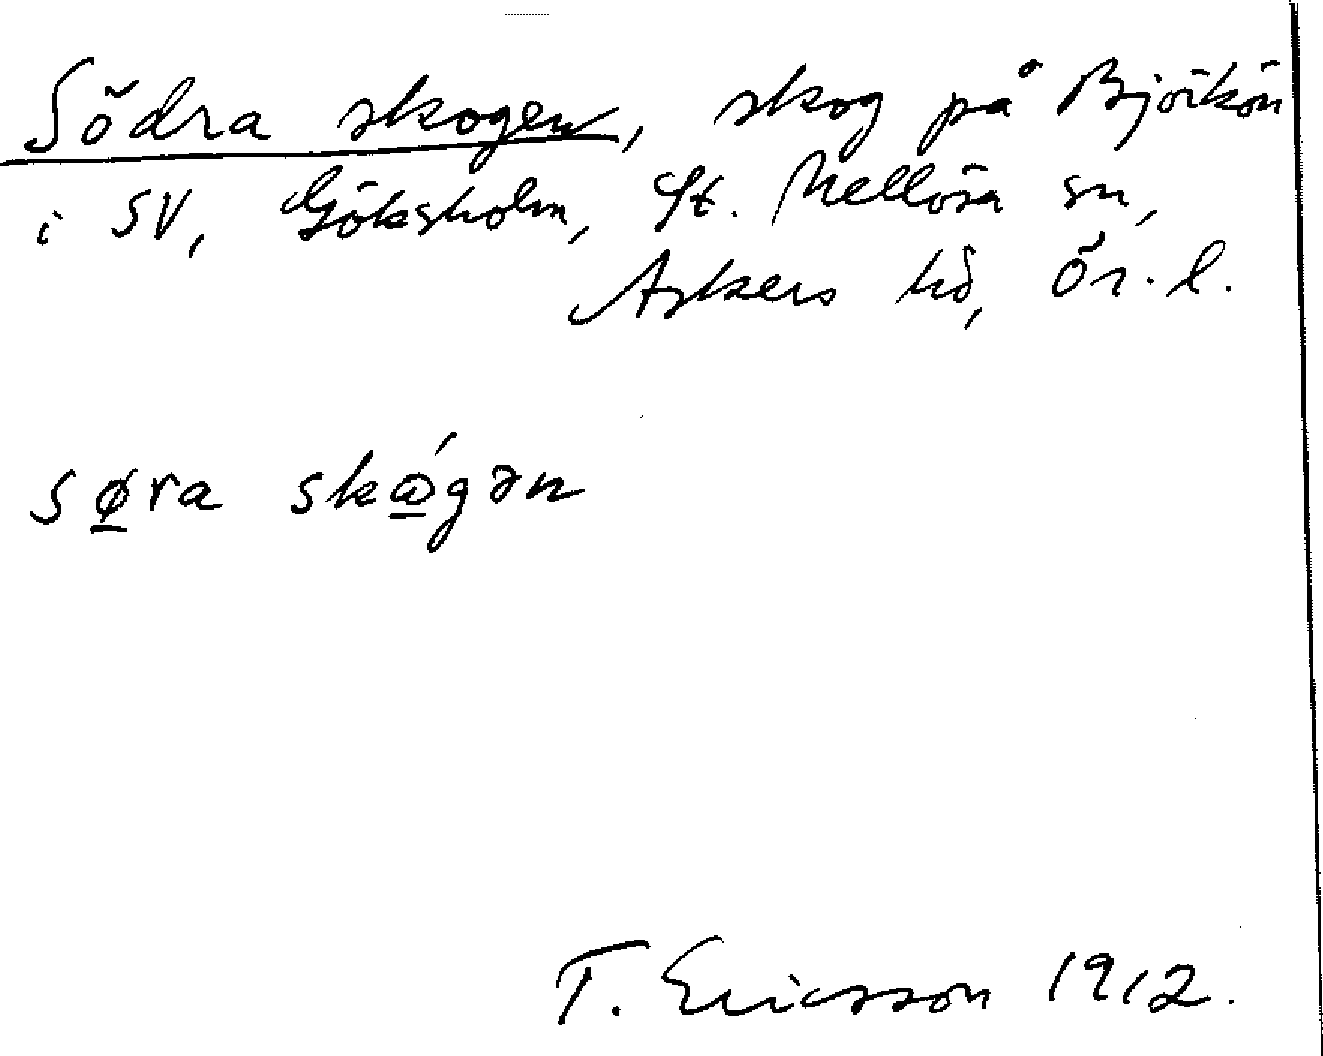 Södra skogen, skog på Björkön
i SV, Göksholm, St. Mellösa sn,
Askers hd, Ör. l.
søra skǿgən
T. Ericsson 1912.